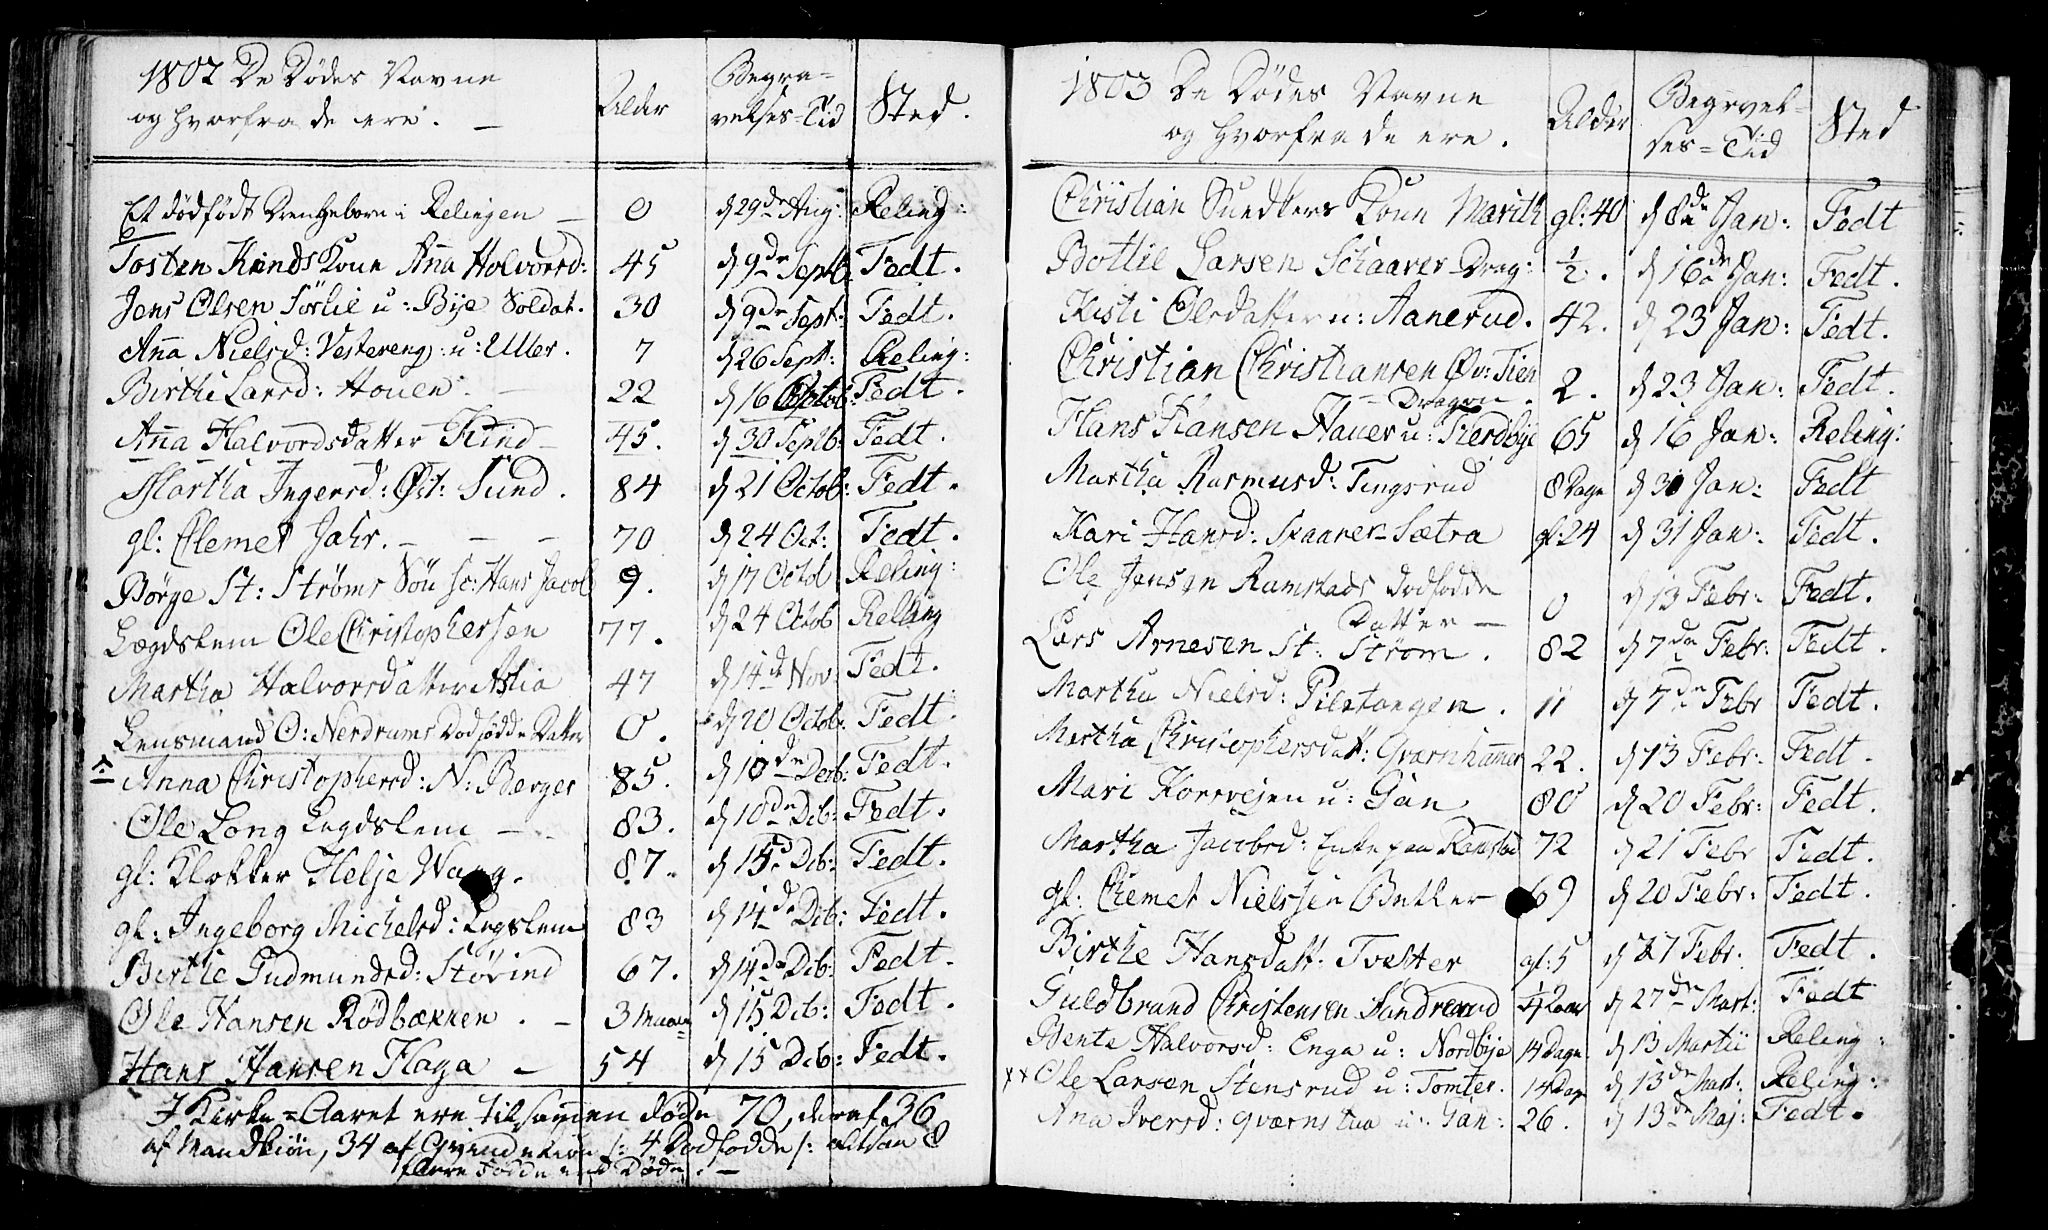 1802 De Dödes Navne
og hvorfra de ere. —
Alder
Begra=
velses=Tid
Sted.
Et dödfödt Drengebarn i Relingen — 0 d 29de Aug: Reling:
Tosten Kinds Kone Aña Halvorsd: 45 d 9de Septb Fedt.
Jens Olsen Sörlie u: Bÿe Soldat. 30 d 9de Sept: Fedt.
Aña Nielsd: Vestereng: u: Uller. 7 d 26 Sept: Reling:
Birthe Larsd: Houen. — 22 d 16 Octob: Fedt.
Aña Halvordsdatter Kind — 45. d 30 Septb: Fedt.
Martha Ingersd: Öst: Sund. 84 d 21 Octob: Fedt.
gl: Clemet Jahr. — — — 70 d 24 Oct: Fedt.
Börge St: Ströms Sön sc: Hans Jacob 9. d 17 Octob Reling:
Lægdslem Ole Christophersen 77. d 24 Octob Reling
Martha Halvorsdatter Astia 47 d 14de Nov: Fedt.
Lensmand O: Nerdrums Dodfödde Datter 0. d 20 Octob: Fedt.
Anna Christophersd: N: Berger 85. d 10de Decb: Fedt.
Ole Long Legdslem — 83. d 10de Dcb: Fedt.
gl: Klokker Helje Wang. 87. d 15de Dcb: Fedt.
gl: Ingeborg Michelsd: Legslem 83 d 14de Dcb: Fedt.
Birthe Gudmundsd: Störind 67. d 14de Dcb: Fedt.
Ole Hansen Rödbækken. — 3 Maan d 15 Dcb: Fedt.
Hans Hansen Flaga — 54 d 15 Dcb: Fedt.
I Kirke=Aaret ere tilsamen döde 70, deraf 36
af Mandkiön, 34 af Qvindekiön /: 4 Dodfodde :/ altsaa 8
flere Födde end Döde. —
1803 De Dödes Navne
og hvorfra de ere.
Alder
Begrvel-
ses=Tid
Sted
Christian Snedkers Kone Marith gl: 40 d 8de Jan: Fedt
Botlil Larsen Schaarer Drag: ½. d 16de Jan: Fedt.
Kisti Olsdatter u: Aanerud. 42. d 23 Jan: Fedt.
Christian Christiansen Öv: Tien 2. d 23 Jan: Fedt.
— Dragon.
Hans Hansen Hauer u: Fierdbÿe 65 d 16 Jan: Reling:
Martha Rasmusd: Tingsrud 8 Dage d 30 Jan: Fedt
Kari Hansd: Skaarer-Sætra gl: 24 d 31 Jan: Fedt.
Ole Jensen Ramstads dodfodde
Datter — 0 d 13 Febr: Fedt.
Lars Arnesen St: Ström. 82 d 7de Febr: Fedt.
Martha Nielsd: Piletangen. 11 d 7de Febr Fedt.
Martha Christophersdatt: Gvarnhamer 22. d 13 Febr: Fedt.
Mari Korsvejen u: Gan 80 d 20 Febr: Fedt.
Martha Jacobsd: Enke paa Ramstad 72 d 21 Febr Fedt.
gl: Clemet Nielssen 69 d 20 Febr: Fedt.
Birthe Hansdatt: Tvetter gl: 5 d 27 Febr. Fedt.
Guldbrand Christensen Sandrerud ¼ Aar d 27de Mart: Fedt
Bente Halvorsd: Enga u: Nordbÿe 14 Dage. d 13 Martii Reling:
xx Ole Larsen Stensrud u: Tomter. 14 Dag d 13de Mart: Reling:
Ana Iversd: Qværnstua u: Gan: 26. d 13de Maj: Fedt.